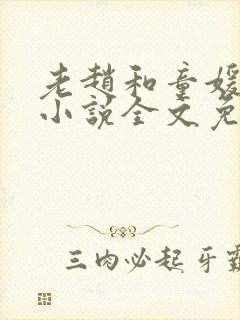 老趙和童媛
小說全文免
三肉必起牙霸